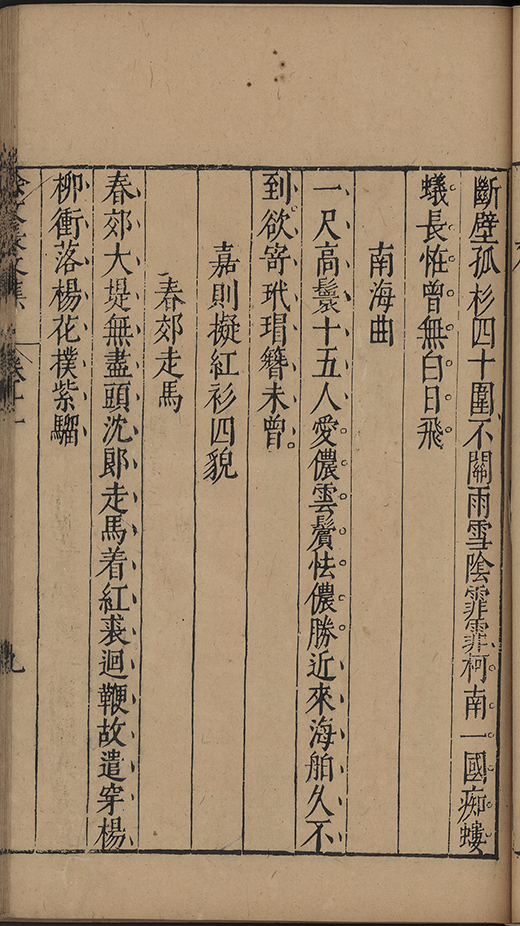 斷壁孤杉四十圍不關雨雪陰霏霏柯南一國痴螻
蟻長恠曾無白日飛
南海曲
一尺高鬟十五人愛儂雲鬢怯儂勝近來海舶久不
到欲寄玳瑁簪未曾
嘉則擬紅衫四貌
春郊走馬
春郊大堤無盡頭沈郎走馬着紅裘迴鞭故遣穿楊
柳衝落楊花樸紫騮
徐文長文集 卷十一 九